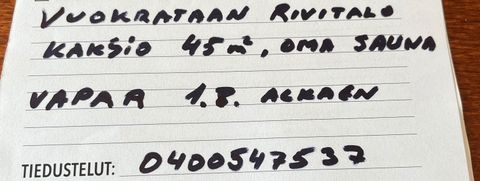 VUOKRATAAN RIVITALO
KAKSIO 45 m², OMA SAUNA
VAPAA 1.8. ALKAEN
TIEDUSTELUT: 0400547537